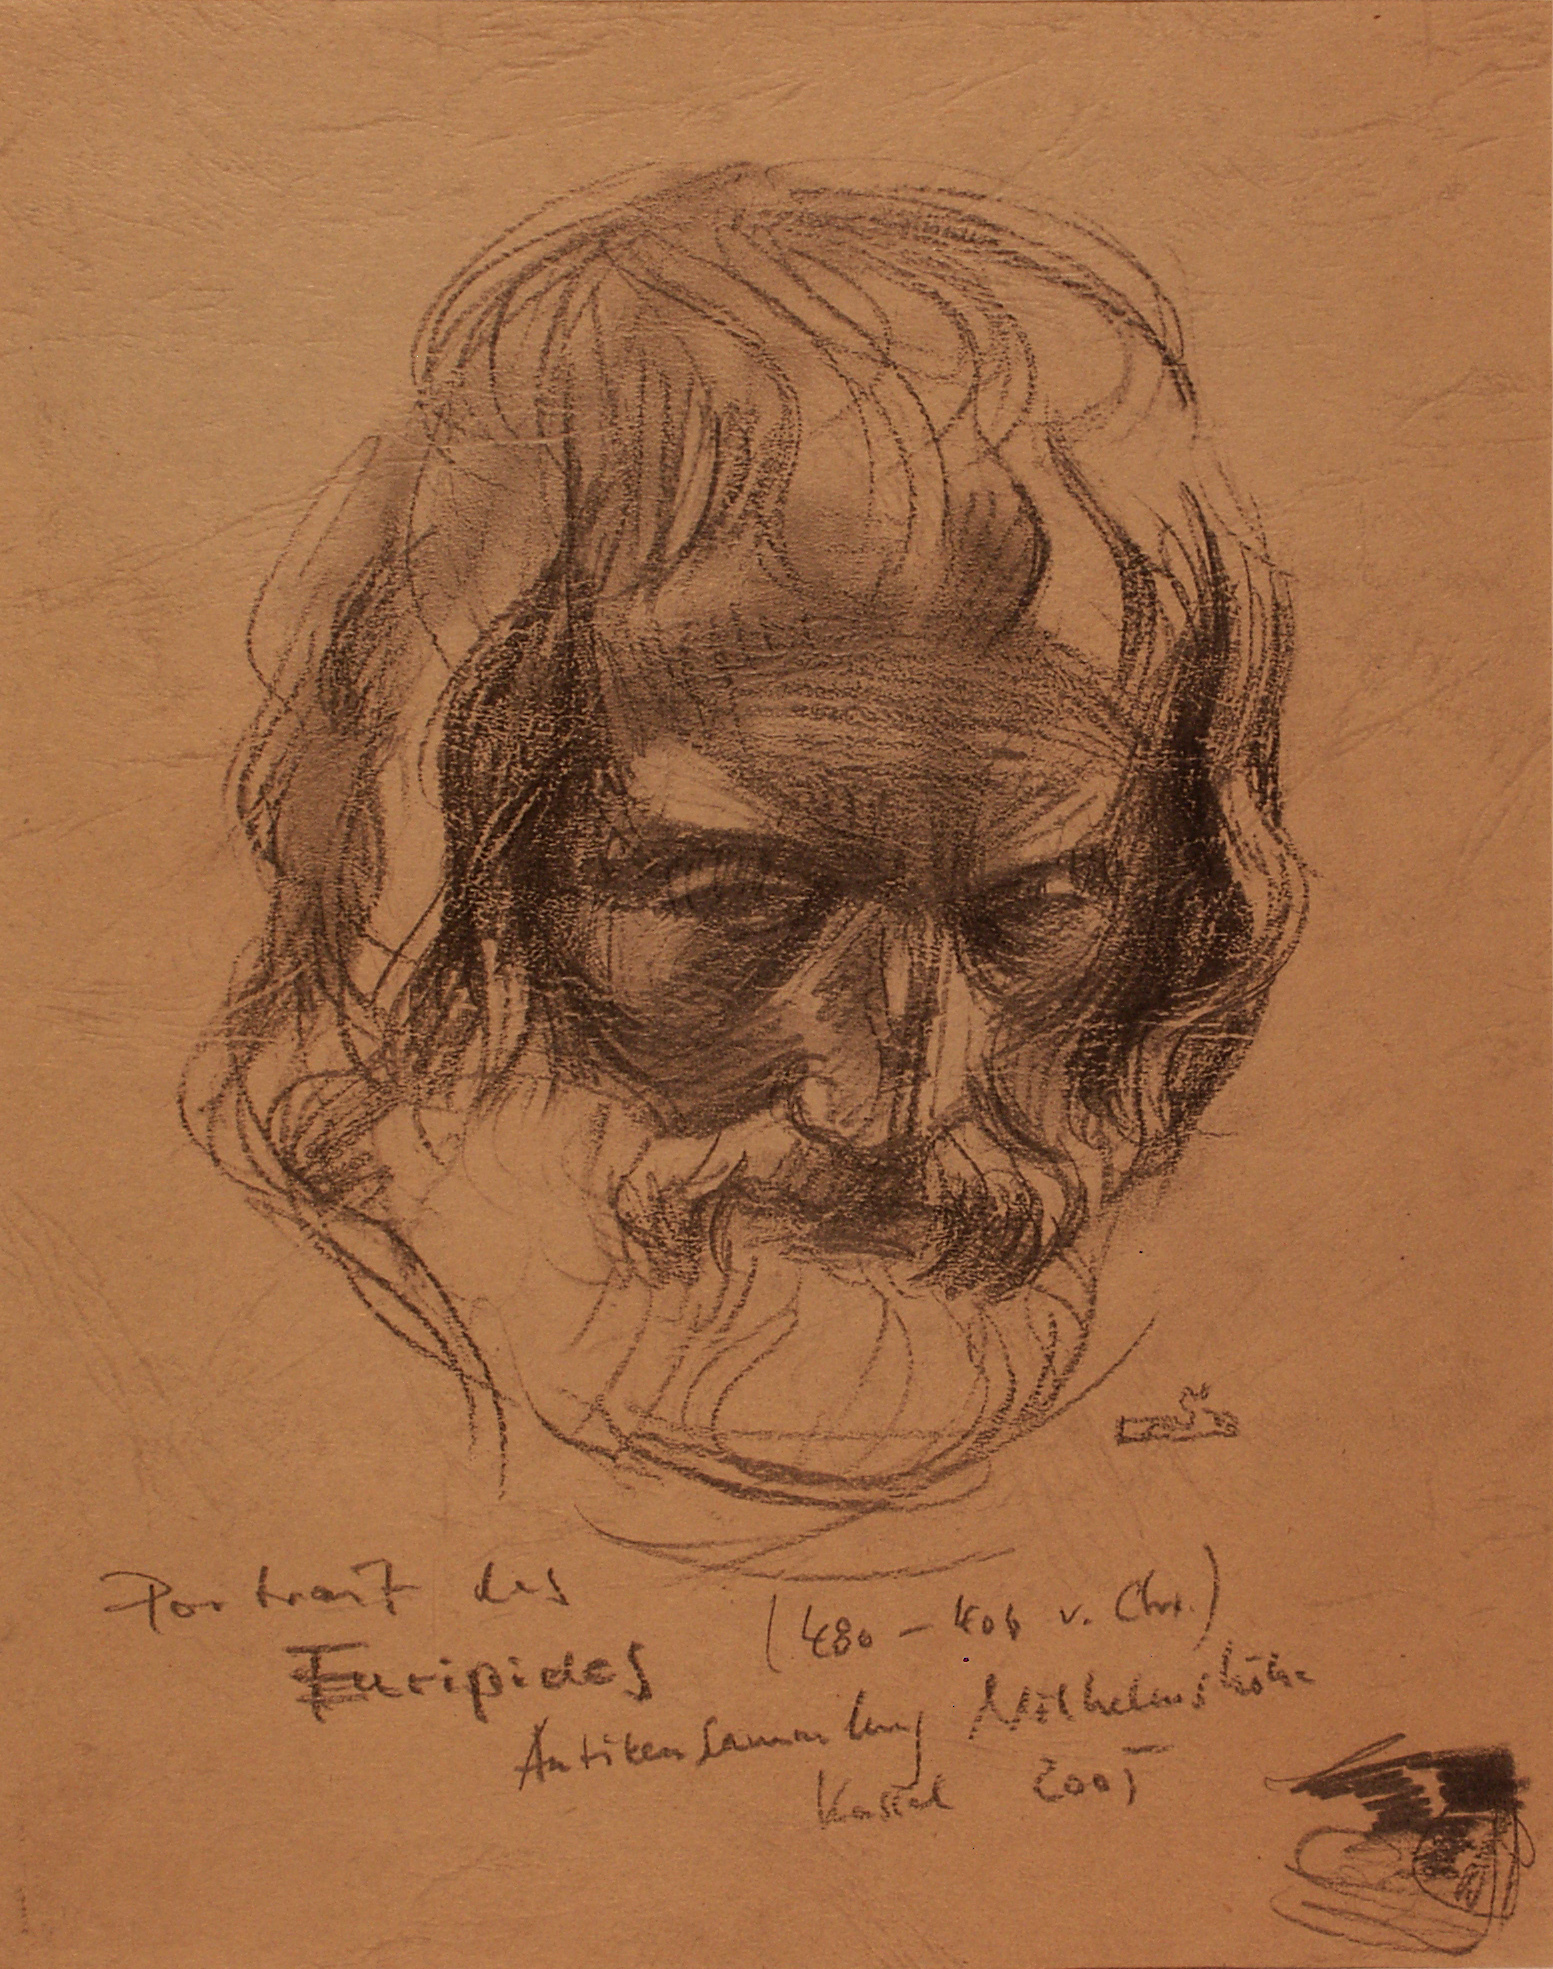 Portrait des
Euripides
(480 - 406 v. Chr.)
Antikensammlung Wilhelmshöhe
Kassel 2005